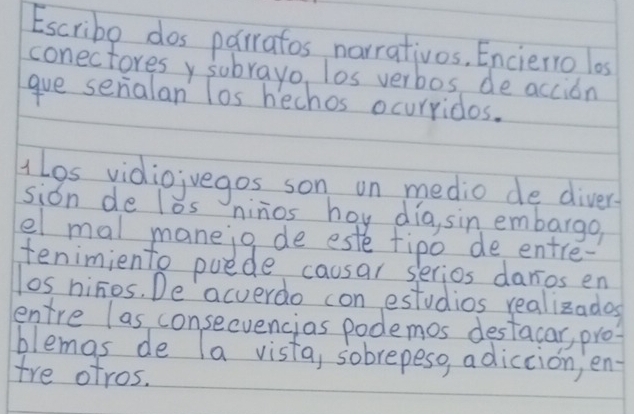 Escribo dos párrafos narrativos. Encierro los
conectores y subrayo los verbos de acción
que señalan los hechos ocurridos.
1 Los vidiojuegos son un medio de diver-
sión de los niños hoy día, sin embargo,
el mal manejo de este tipo de entre-
tenimiento puede causar serios daños en
los niños. De acuerdo con estudios realizados
entre las consecuencias podemos destacar, pro-
blemas de la vista, sobrepeso, adicción, en-
tre otros.